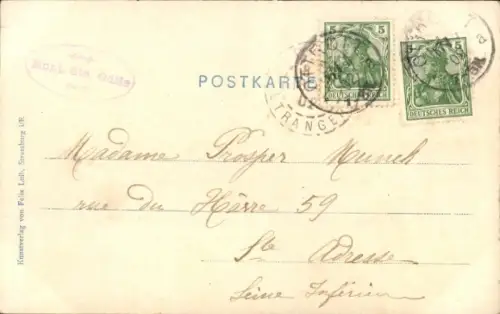 Mont Ste Odile
POSTKARTE
5 5
DEUTSCHES REICH
5 5
DEUTSCHES REICH
ETRANGER
Madame Prosper Munch
rue du Hâvre 59
Ste Adresse
Seine Inférieure
Kunstverlag von Felix Luib, Strassburg i/E.